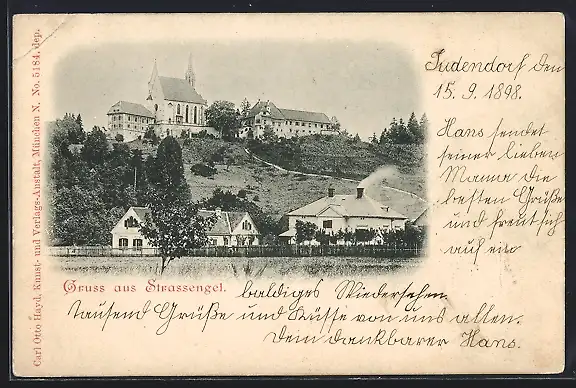 Carl Otto Hayd, Kunst- und Verlags-Anstalt, München N. No. 5184, dep.
Judendorf den
15. 9. 1898.
Hans sendet
seiner lieben
Mama die
besten Grüße
und freut sich
auf ein
Gruss aus Strassengel.
baldiges Wiedersehen.
Tausend Grüße und Küsse von uns allen.
Dein dankbarer Hans.